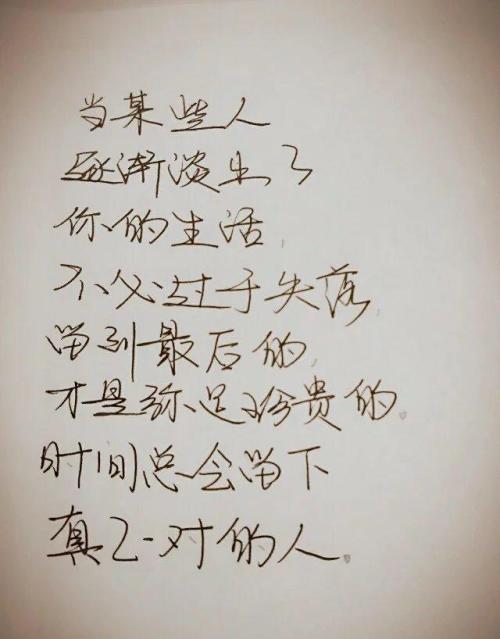 当某些人
逐渐淡出了
你的生活,
不必过于失落,
留到最后的,
才是弥足珍贵的。
时间总会留下
真正对的人。